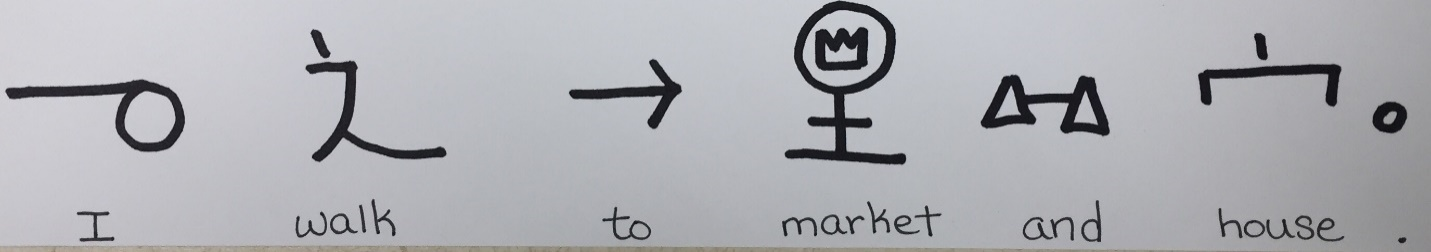 I walk to market and house.